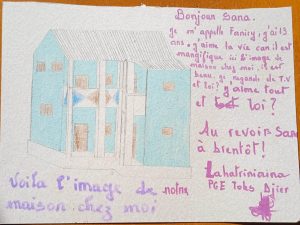 Bonjour Sana.
je m'appelle Faniry, j'ai 13
ans, j'aime la vie car il est
mangifique ici l'image de
maison chez moi, il est
beau. je regande de T.V
et toi? j'aime tout
et toi?
Au revoir Sana
à bientôt!
Lahatriniaina
PGE Tobs
Voila l'image de notre
maison chez moi